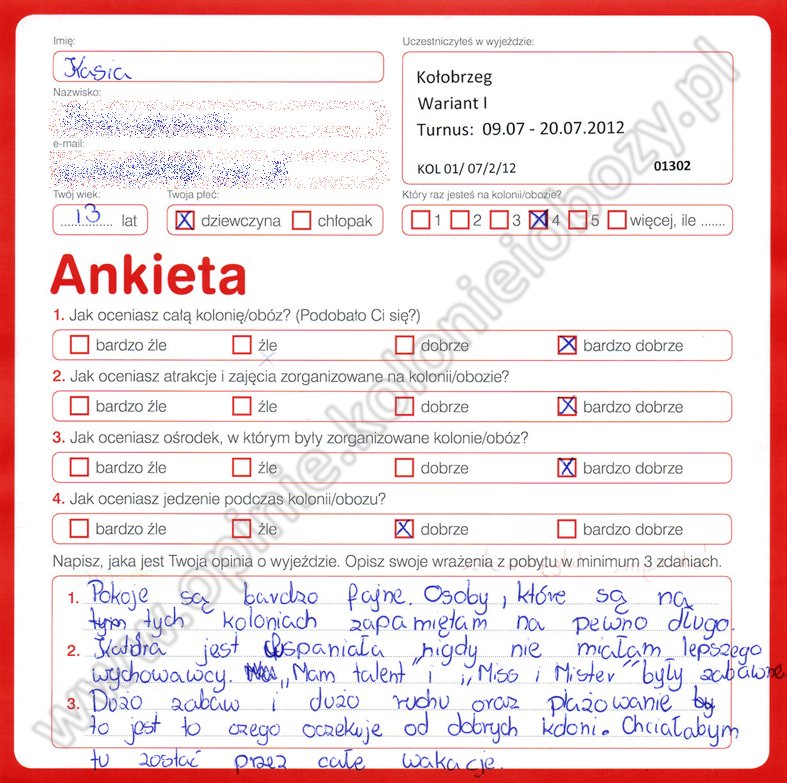 Imię:
Kasia
Uczestniczyłeś w wyjeździe:
Kołobrzeg
Wariant I
Turnus: 09.07 - 20.07.2012
KOL 01/ 07/2/12 01302
Nazwisko:
e-mail:
Twój wiek:
13 lat
Twoja płeć:
dziewczyna chłopak
Który raz jesteś na kolonii/obozie?
1 2 3 4 5 więcej, ile .......
Ankieta
1. Jak oceniasz całą kolonię/obóz? (Podobało Ci się?)
bardzo źle źle dobrze bardzo dobrze
2. Jak oceniasz atrakcje i zajęcia zorganizowane na kolonii/obozie?
bardzo źle źle dobrze bardzo dobrze
3. Jak oceniasz ośrodek, w którym były zorganizowane kolonie/obóz?
bardzo źle źle dobrze bardzo dobrze
4. Jak oceniasz jedzenie podczas kolonii/obozu?
bardzo źle źle dobrze bardzo dobrze
Napisz, jaka jest Twoja opinia o wyjeździe. Opisz swoje wrażenia z pobytu w minimum 3 zdaniach.
1. Pokoje są bardzo fajne. Osoby, które są na
tym tych koloniach zapamiętam na pewno długo.
2. Kadra jest wspaniała, nigdy nie miałam lepszego
wychowawcy. Na „Mam talent" i „Miss i Mister" były zabawne.
3. Dużo zabaw i dużo ruchu oraz plażowanie by
to jest to czego oczekuje od dobrych koloni. Chciałabym
tu zostać przez całe wakacje.
www.opinie.kolonieiobozy.pl